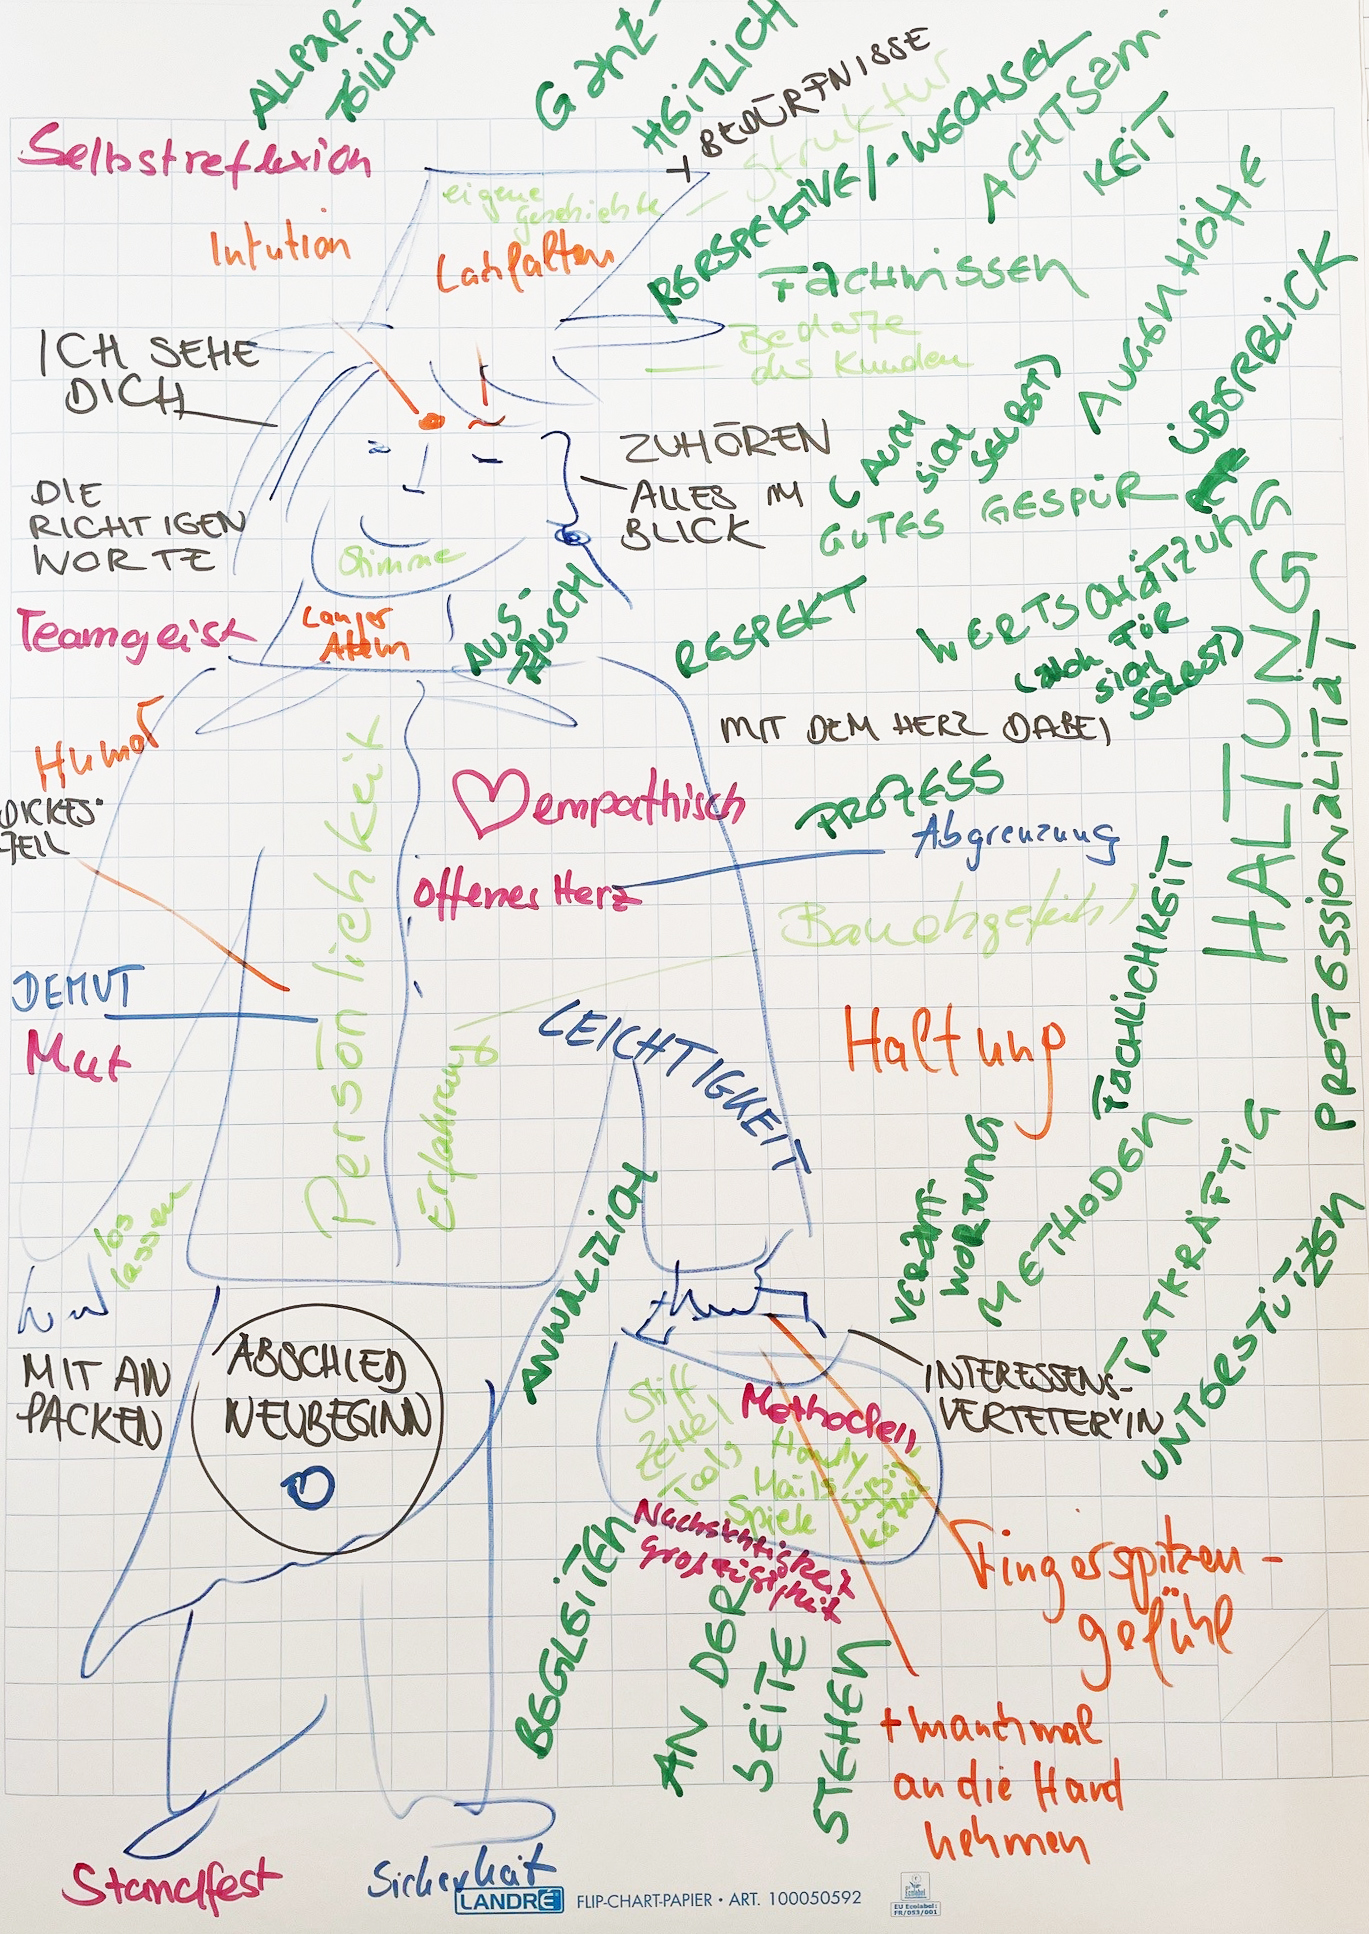 ALLPAR-
TEILICH
GANZ-
HEITLICH
BEDÜRFNISSE
Struktur
PERSPEKTIVE/-WECHSEL
ACHTSAM-
KEIT
Selbstreflexion
eigene
Geschichte
Intution
Lachfalten
FACHWISSEN
AUGENHÖHE
ÜBERBLICK
Bedarfe
des Kunden
ICH SEHE
DICH
ZUHÖREN
ALLES IM
BLICK
(AUCH
SICH
SELBST)
GUTES GESPÜR
DIE
RICHTIGEN
WORTE
Stimme
Teamgeist
Langer
Atem
AUS-
TAUSCH
RESPEKT
WERTSCHÄTZUNG
(AUCH FÜR
SICH
SELBST)
HALTUNG
PROFESSIONALITÄT
MIT DEM HERZ DABEI
Humor
DICKES
FELL
Persönlichkeit
empathisch
PROZESS
Abgrenzung
offenes Herz
Bauchgefühl
FACHLICHKEIT
DEMUT
Mut
Erfahrung
LEICHTIGKEIT
Haltung
los
lassen
ANWALTLICH
VERANT-
WORTUNG
METHODEN
TATKRÄFTIG
UNTERSTÜTZEN
MIT AN
PACKEN
ABSCHIED
NEUBEGINN
INTERESSENS-
VERTETER*IN
Stift
Zettel
Tools
Methoden
Handy
Mails
Spiele
Nachsichtigkeit
Großzügigkeit
Fingerspitzen-
gefühl
BEGLEITEN
AN DER
SEITE
STEHEN
+ manchmal
an die Hand
nehmen
Standfest
Sicherheit
LANDRÉ FLIP-CHART-PAPIER • ART. 100050592
EU Ecolabel:
FR/053/001